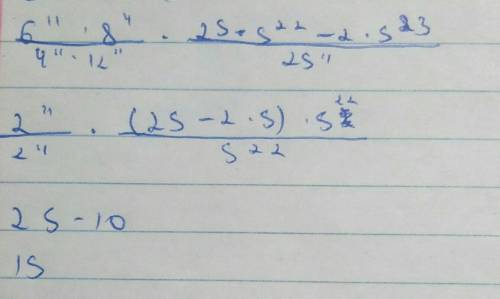 6¹¹ · 8¹¹ / 4¹¹ · 12¹¹ · 25 · 5²² − 2 · 5²³ / 25¹¹
2¹¹ / 2¹¹ · (25 − 2 · 5) · 5²² / 5²²
25 − 10
15